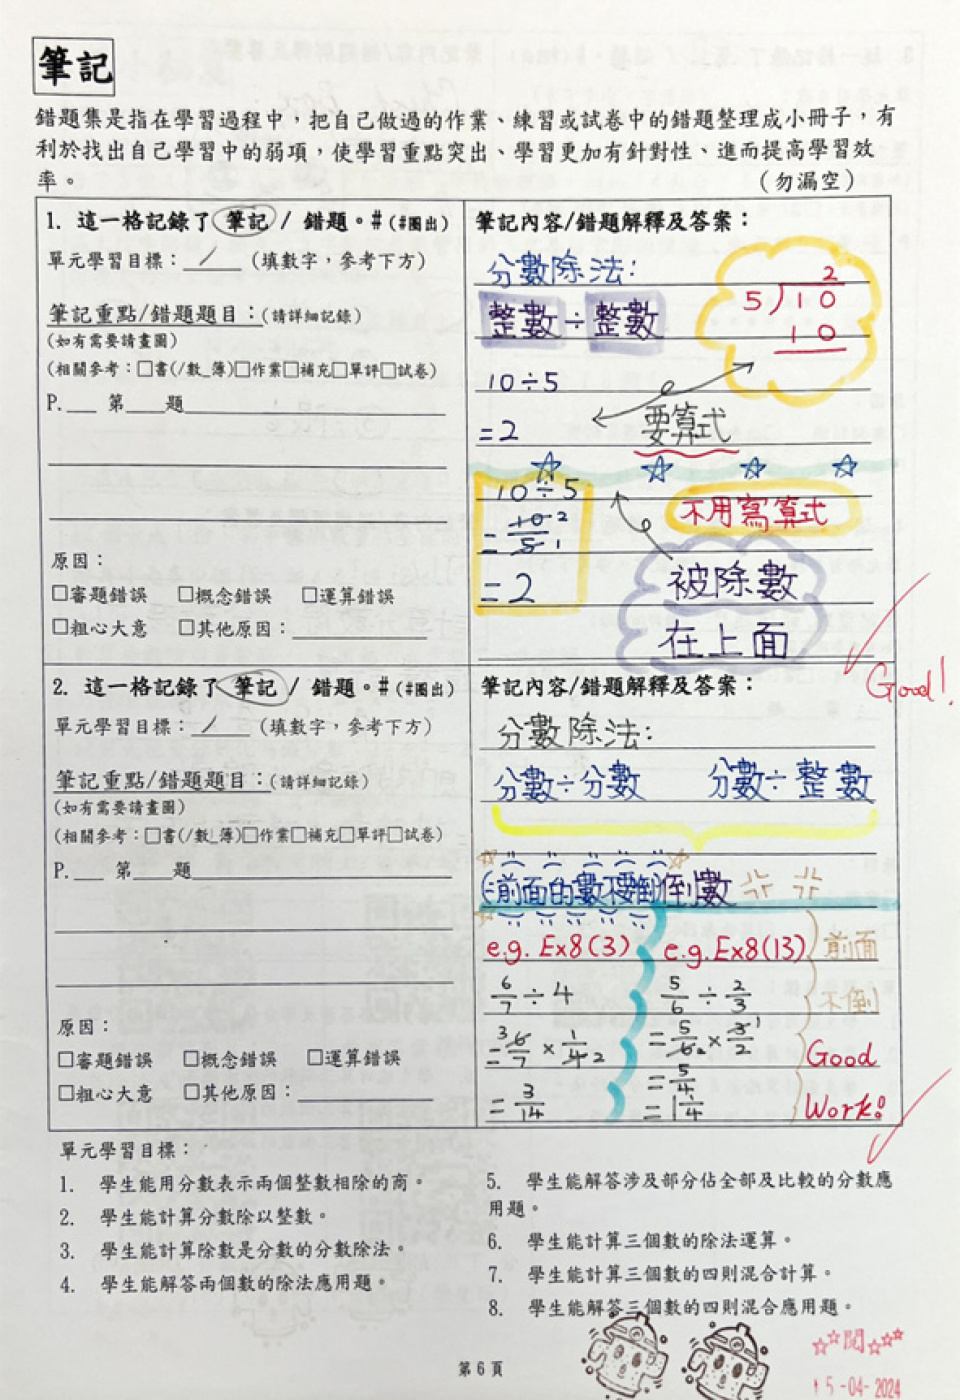 筆記
錯題集是指在學習過程中，把自己做過的作業、練習或試卷中的錯題整理成小冊子，有
利於找出自己學習中的弱項，使學習重點突出、學習更加有針對性、進而提高學習效
率。 （勿漏空）
1. 這一格記錄了 筆記 / 錯題。#(#圈出)
單元學習目標：/ (填數字，參考下方)
筆記重點/錯題題目：(請詳細記錄)
(如有需要請畫圖)
(相關參考：□書(/數_簿)□作業□補充□單評□試卷)
P.___ 第____題
原因：
□審題錯誤 □概念錯誤 □運算錯誤
□粗心大意 □其他原因：
筆記內容/錯題解釋及答案：
分數除法:
整數÷整數
2
5)10
10
10÷5
=2
要算式
10÷5
=10/5 2 1
=2
不用寫算式
被除數
在上面
Good!
2. 這一格記錄了 筆記 / 錯題。#(#圈出)
單元學習目標：/ (填數字，參考下方)
筆記重點/錯題題目：(請詳細記錄)
(如有需要請畫圖)
(相關參考：□書(/數_簿)□作業□補充□單評□試卷)
P.___ 第____題
原因：
□審題錯誤 □概念錯誤 □運算錯誤
□粗心大意 □其他原因：
筆記內容/錯題解釋及答案：
分數除法:
分數÷分數 分數÷整數
前面的數不要倒 倒數
e.g. Ex8(3)
6/7÷4
=3 6/7×1/4 2
=3/14
e.g. Ex8(13)
5/6÷2/3
=5/6 2×3/2 1
=5/4
=1 1/4
前面
不倒
Good
Work!
單元學習目標：
1. 學生能用分數表示兩個整數相除的商。
2. 學生能計算分數除以整數。
3. 學生能計算除數是分數的分數除法。
4. 學生能解答兩個數的除法應用題。
5. 學生能解答涉及部分佔全部及比較的分數應
用題。
6. 學生能計算三個數的除法運算。
7. 學生能計算三個數的四則混合計算。
8. 學生能解答三個數的四則混合應用題。
第 6 頁
閱
15-04-2024